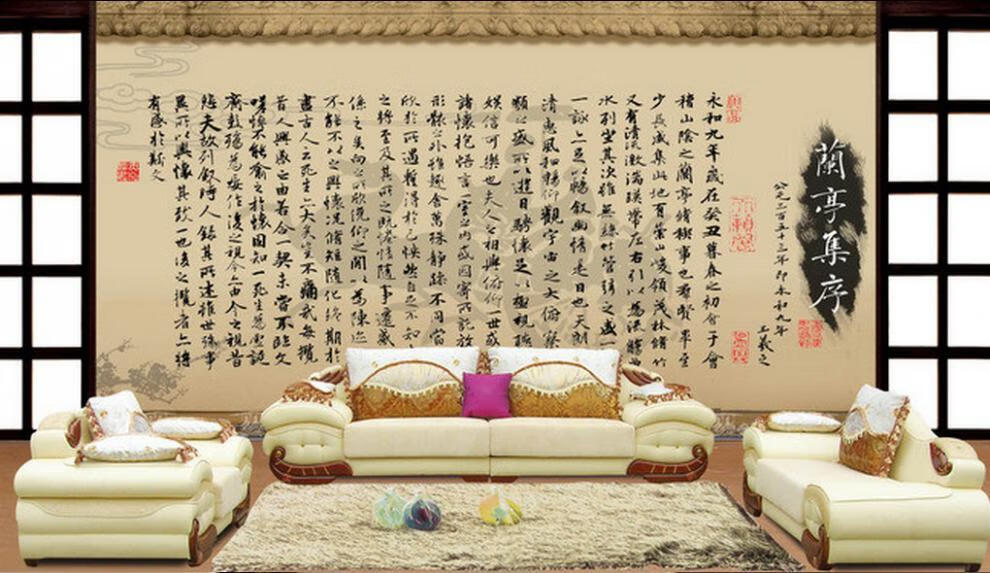 蘭亭集序
公元三百五十三年即永和九年
王羲之
永和九年歲在癸丑暮春之初會于會
稽山陰之蘭亭脩禊事也羣賢畢至
少長咸集此地有崇山峻領茂林脩竹
又有清流激湍暎帶左右引以為流觴曲
水列坐其次雖無絲竹管弦之盛一
一詠亦足以暢叙幽情是日也天朗
清惠風和暢仰觀宇宙之大俯察
類之盛所以遊目騁懷足以極視聽
娛信可樂也夫人之相與俯仰一世或
諸懷抱悟言一室之內或因寄所託放
形骸之外雖趣舍萬殊靜躁不同當
欣於所遇暫得於己快然自足不知
之將至及其所之既惓情隨事遷感
係之矣向之所欣俛仰之間以為陳迹
不能不以之興懷況脩短隨化終期於
盡古人云死生亦大矣豈不痛哉每攬
昔人興感之由若合一契未嘗不臨文
嗟悼不能喻之於懷固知一死生為虛誕
齊彭殤為妄作後之視今亦由今之視昔
悲夫故列叙時人錄其所述雖世殊事
異所以興懷其致一也後之攬者亦將
有感於斯文